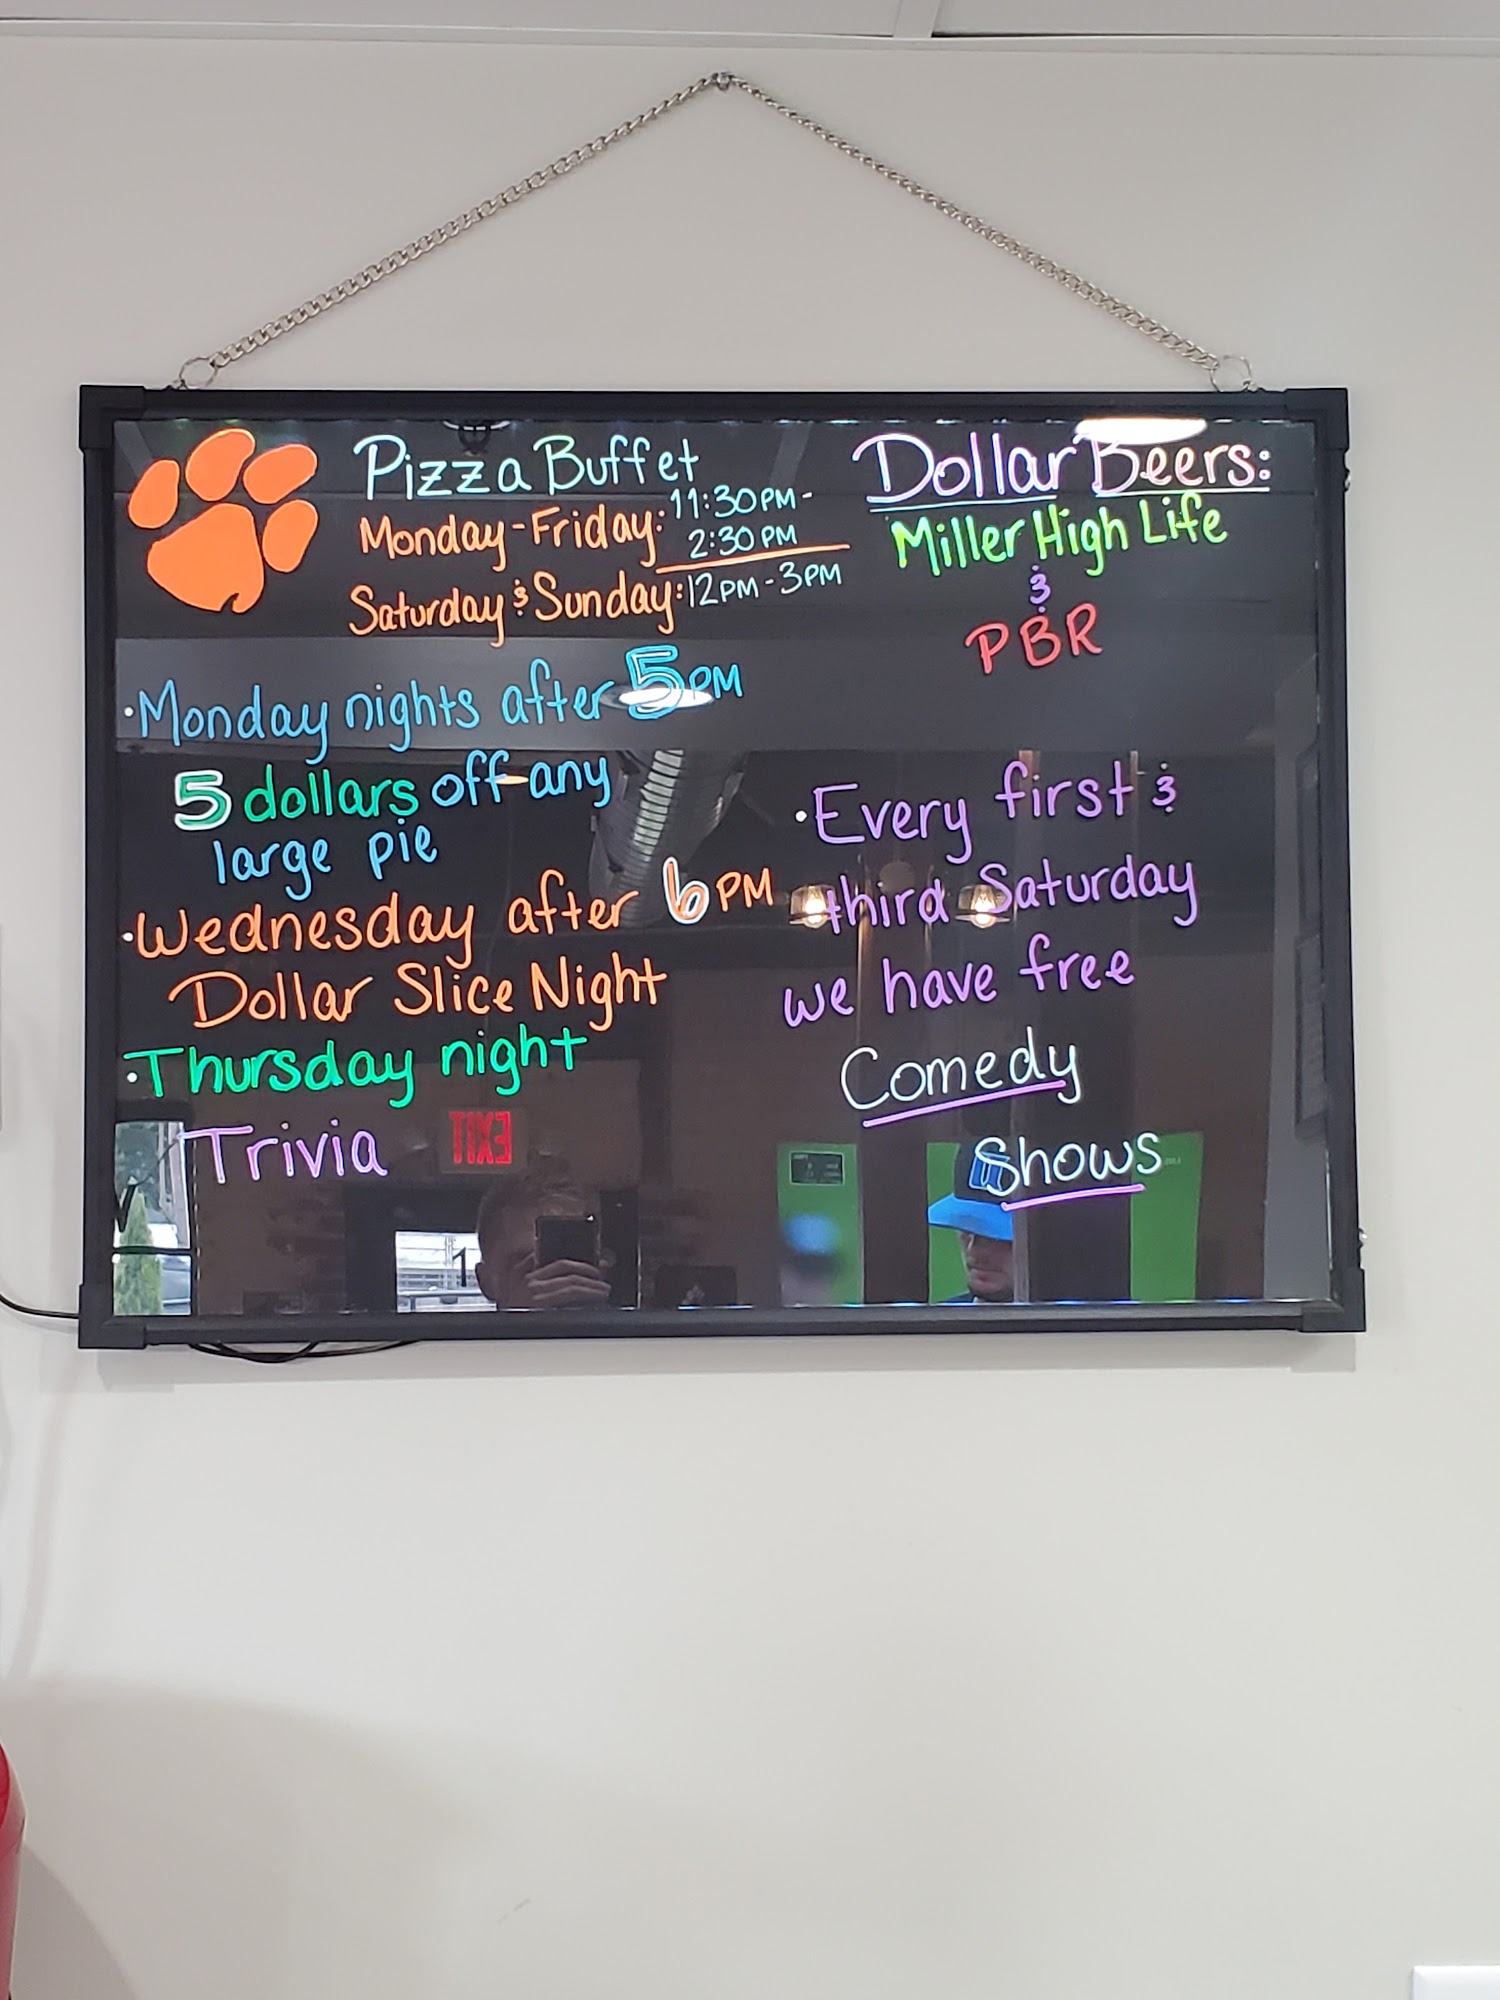 Pizza Buffet
Monday-Friday: 11:30PM-
2:30PM
Saturday & Sunday: 12PM-3PM
·Monday nights after 5PM
5 dollars off any
large pie
·Wednesday after 6PM
Dollar Slice Night
·Thursday night
Trivia
Dollar Beers:
Miller High Life
&
PBR
·Every first &
third Saturday
we have free
Comedy
Shows
EXIT